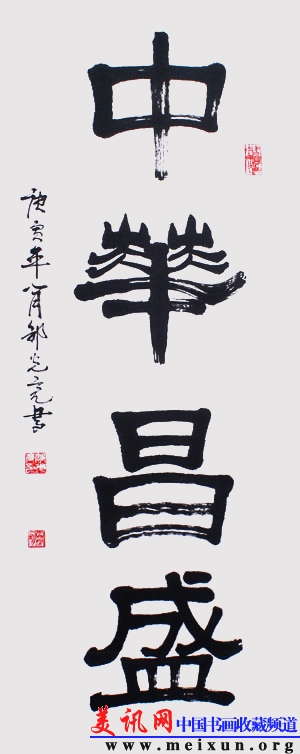 中華昌盛
庚寅年八月邹光亮書
美讯网 中国书画收藏频道
www.meixun.org